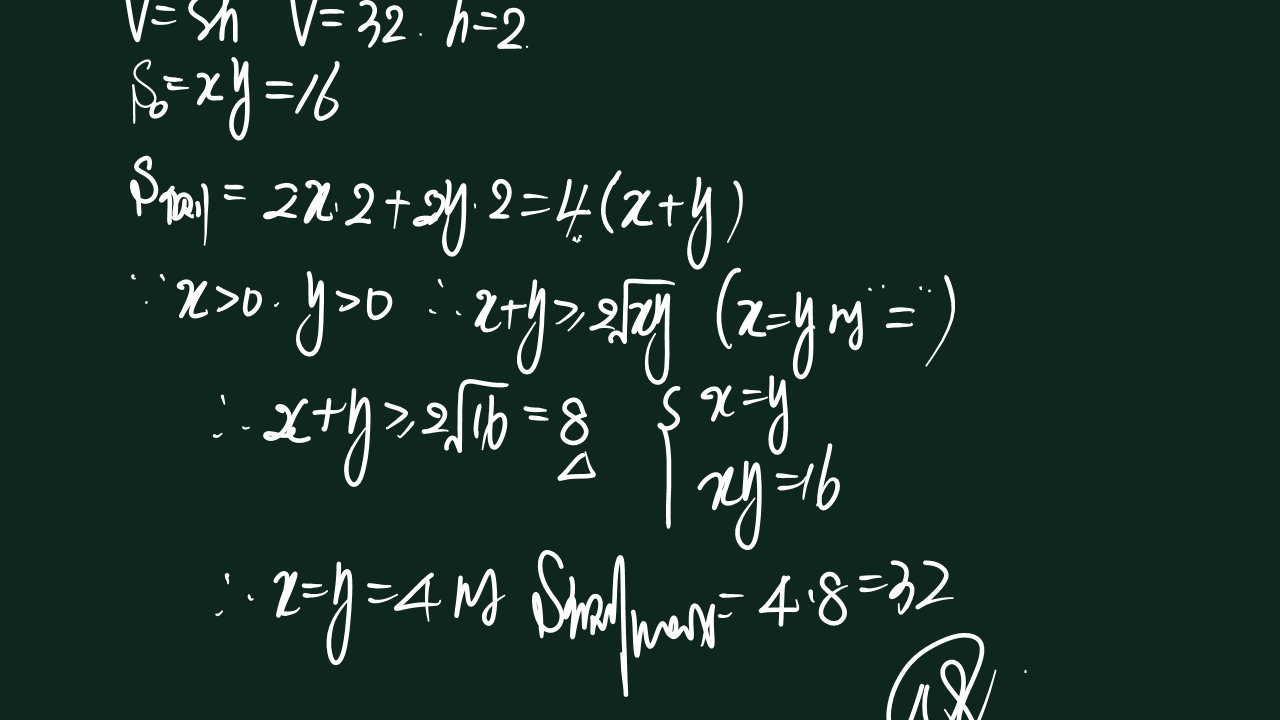 V=Sh V=32. h=2
S₀=xy=16
S = 2x·2+2y·2=4(x+y)
∵ x>0 · y>0 ∴ x+y⩾2√xy (x=y "=")
∴ x+y⩾2√16=8 { x=y
xy=16
∴ x=y=4 S = 4·8=32